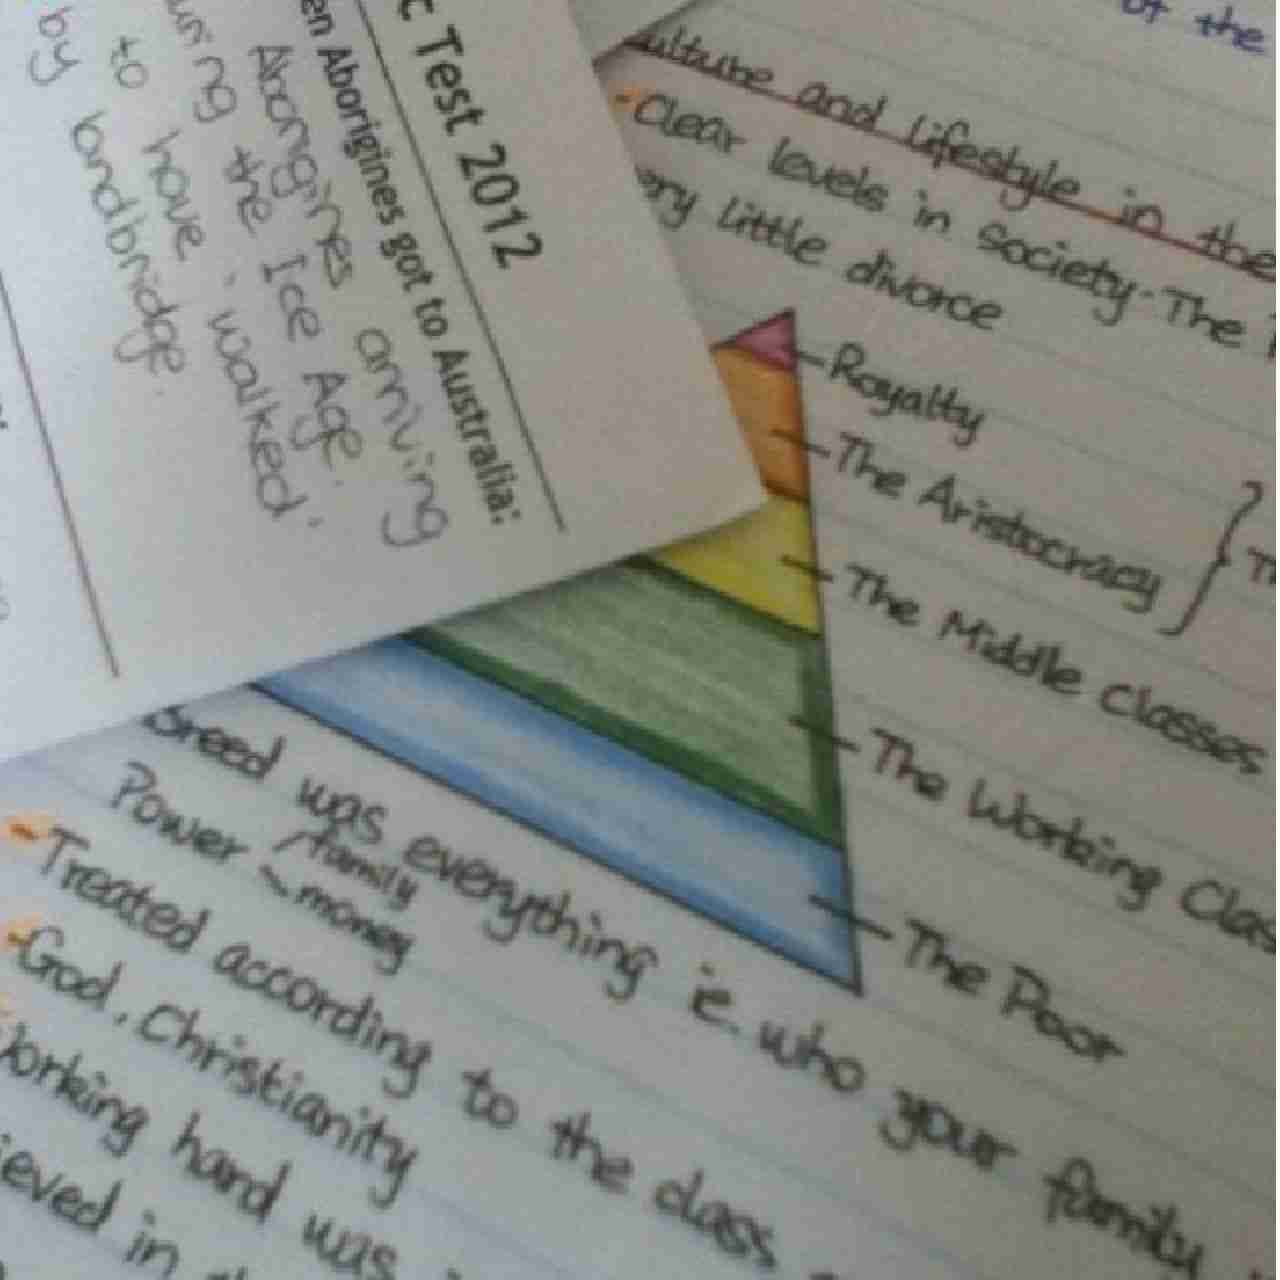 Test 2012
Aborigines got to Australia:
Aborigines arriving
the Ice Age.
to have 'walked'
by landbridge.
of the
and Lifestyle in the
-Clear levels in society-The
little divorce
Royalty
The Aristocracy
The Middle Classes
The Working
The Poor
Breed was everything ie. who your family
Power family
money
-Treated according to the class
-God, Christianity
hard was
in